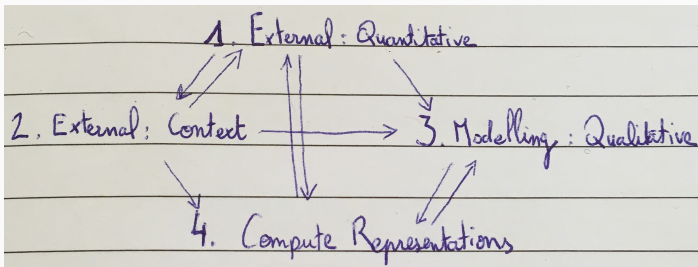 1. External: Quantitative
2. External: Context 3. Modelling: Qualitative
4. Compute Representations